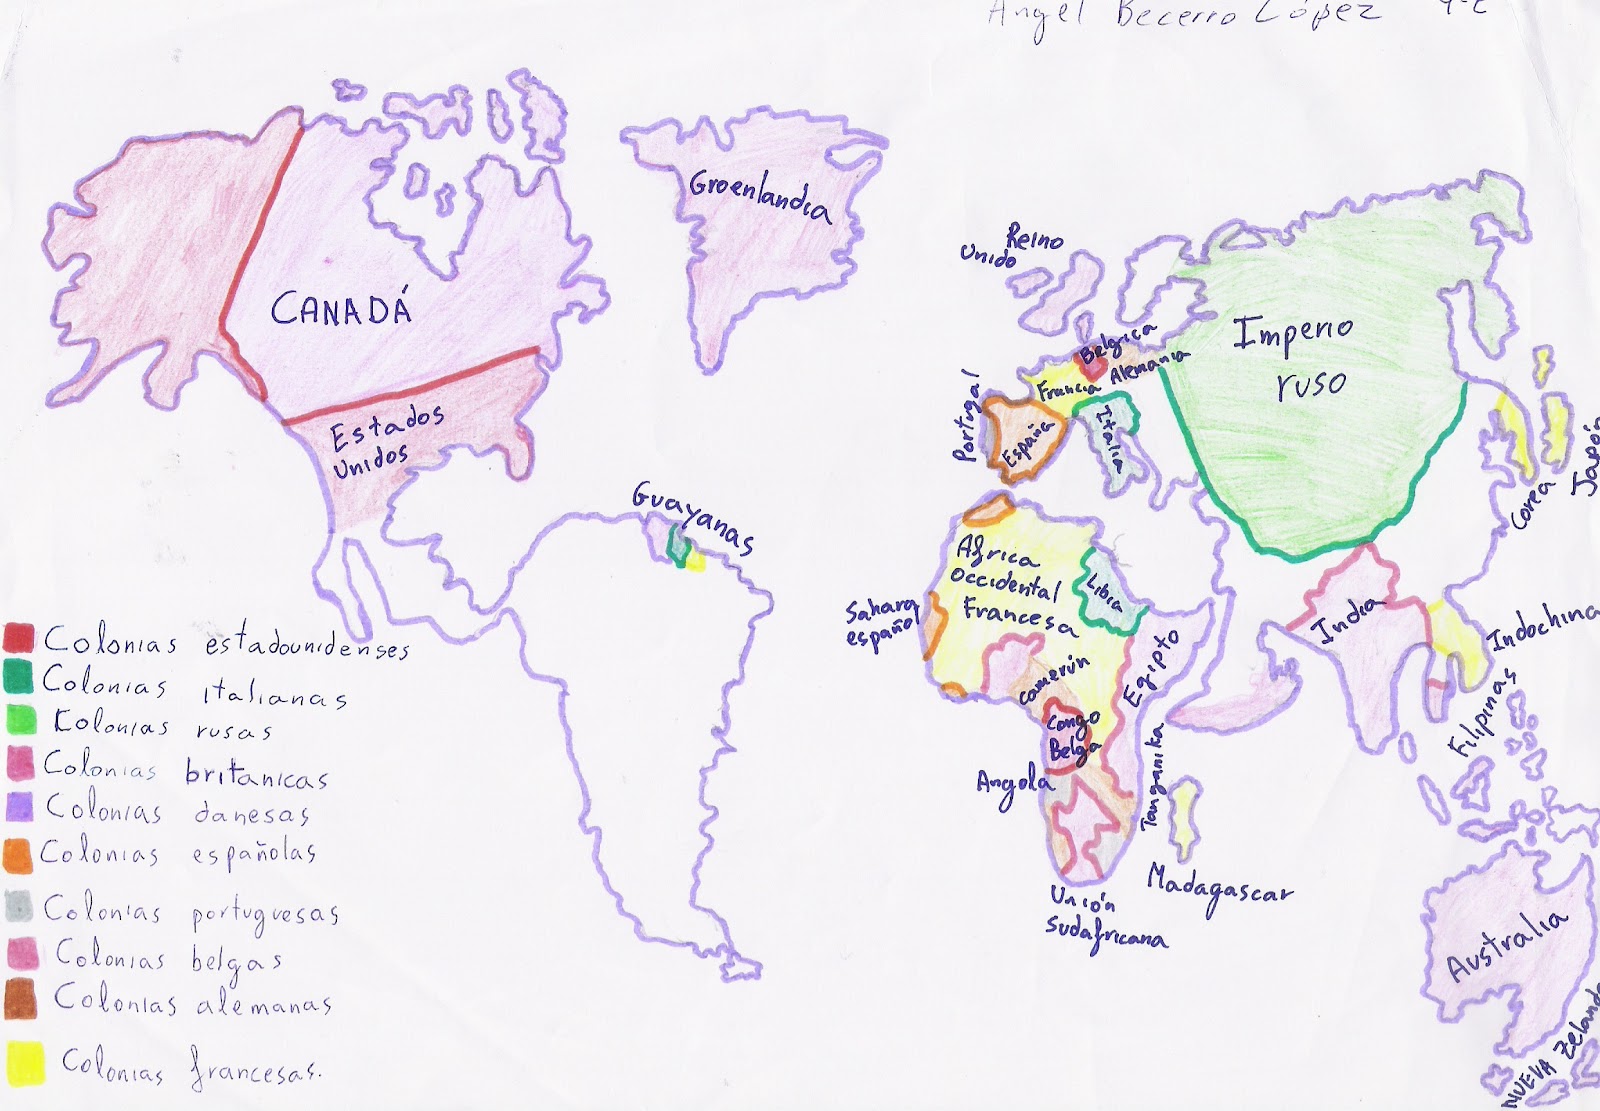 Angel Becerro López 4-C
Groenlandia
Reino
Unido
CANADÁ
Imperio
ruso
Belgica
Alemania
Francia
Portugal
España
Italia
Estados
Unidos
Japón
Corea
Guayanas
Africa
occidental
Francesa
Libia
Sahara
español
India
Indochina
Camerún
Egipto
Filipinas
Congo
Belga
Angola
Tanganika
Madagascar
Unión
Sudafricana
Australia
NUEVA Zelanda
Colonias estadounidenses
Colonias italianas
Colonias rusas
Colonias britanicas
Colonias danesas
Colonias españolas
Colonias portuguesas
Colonias belgas
Colonias alemanas
Colonias francesas.